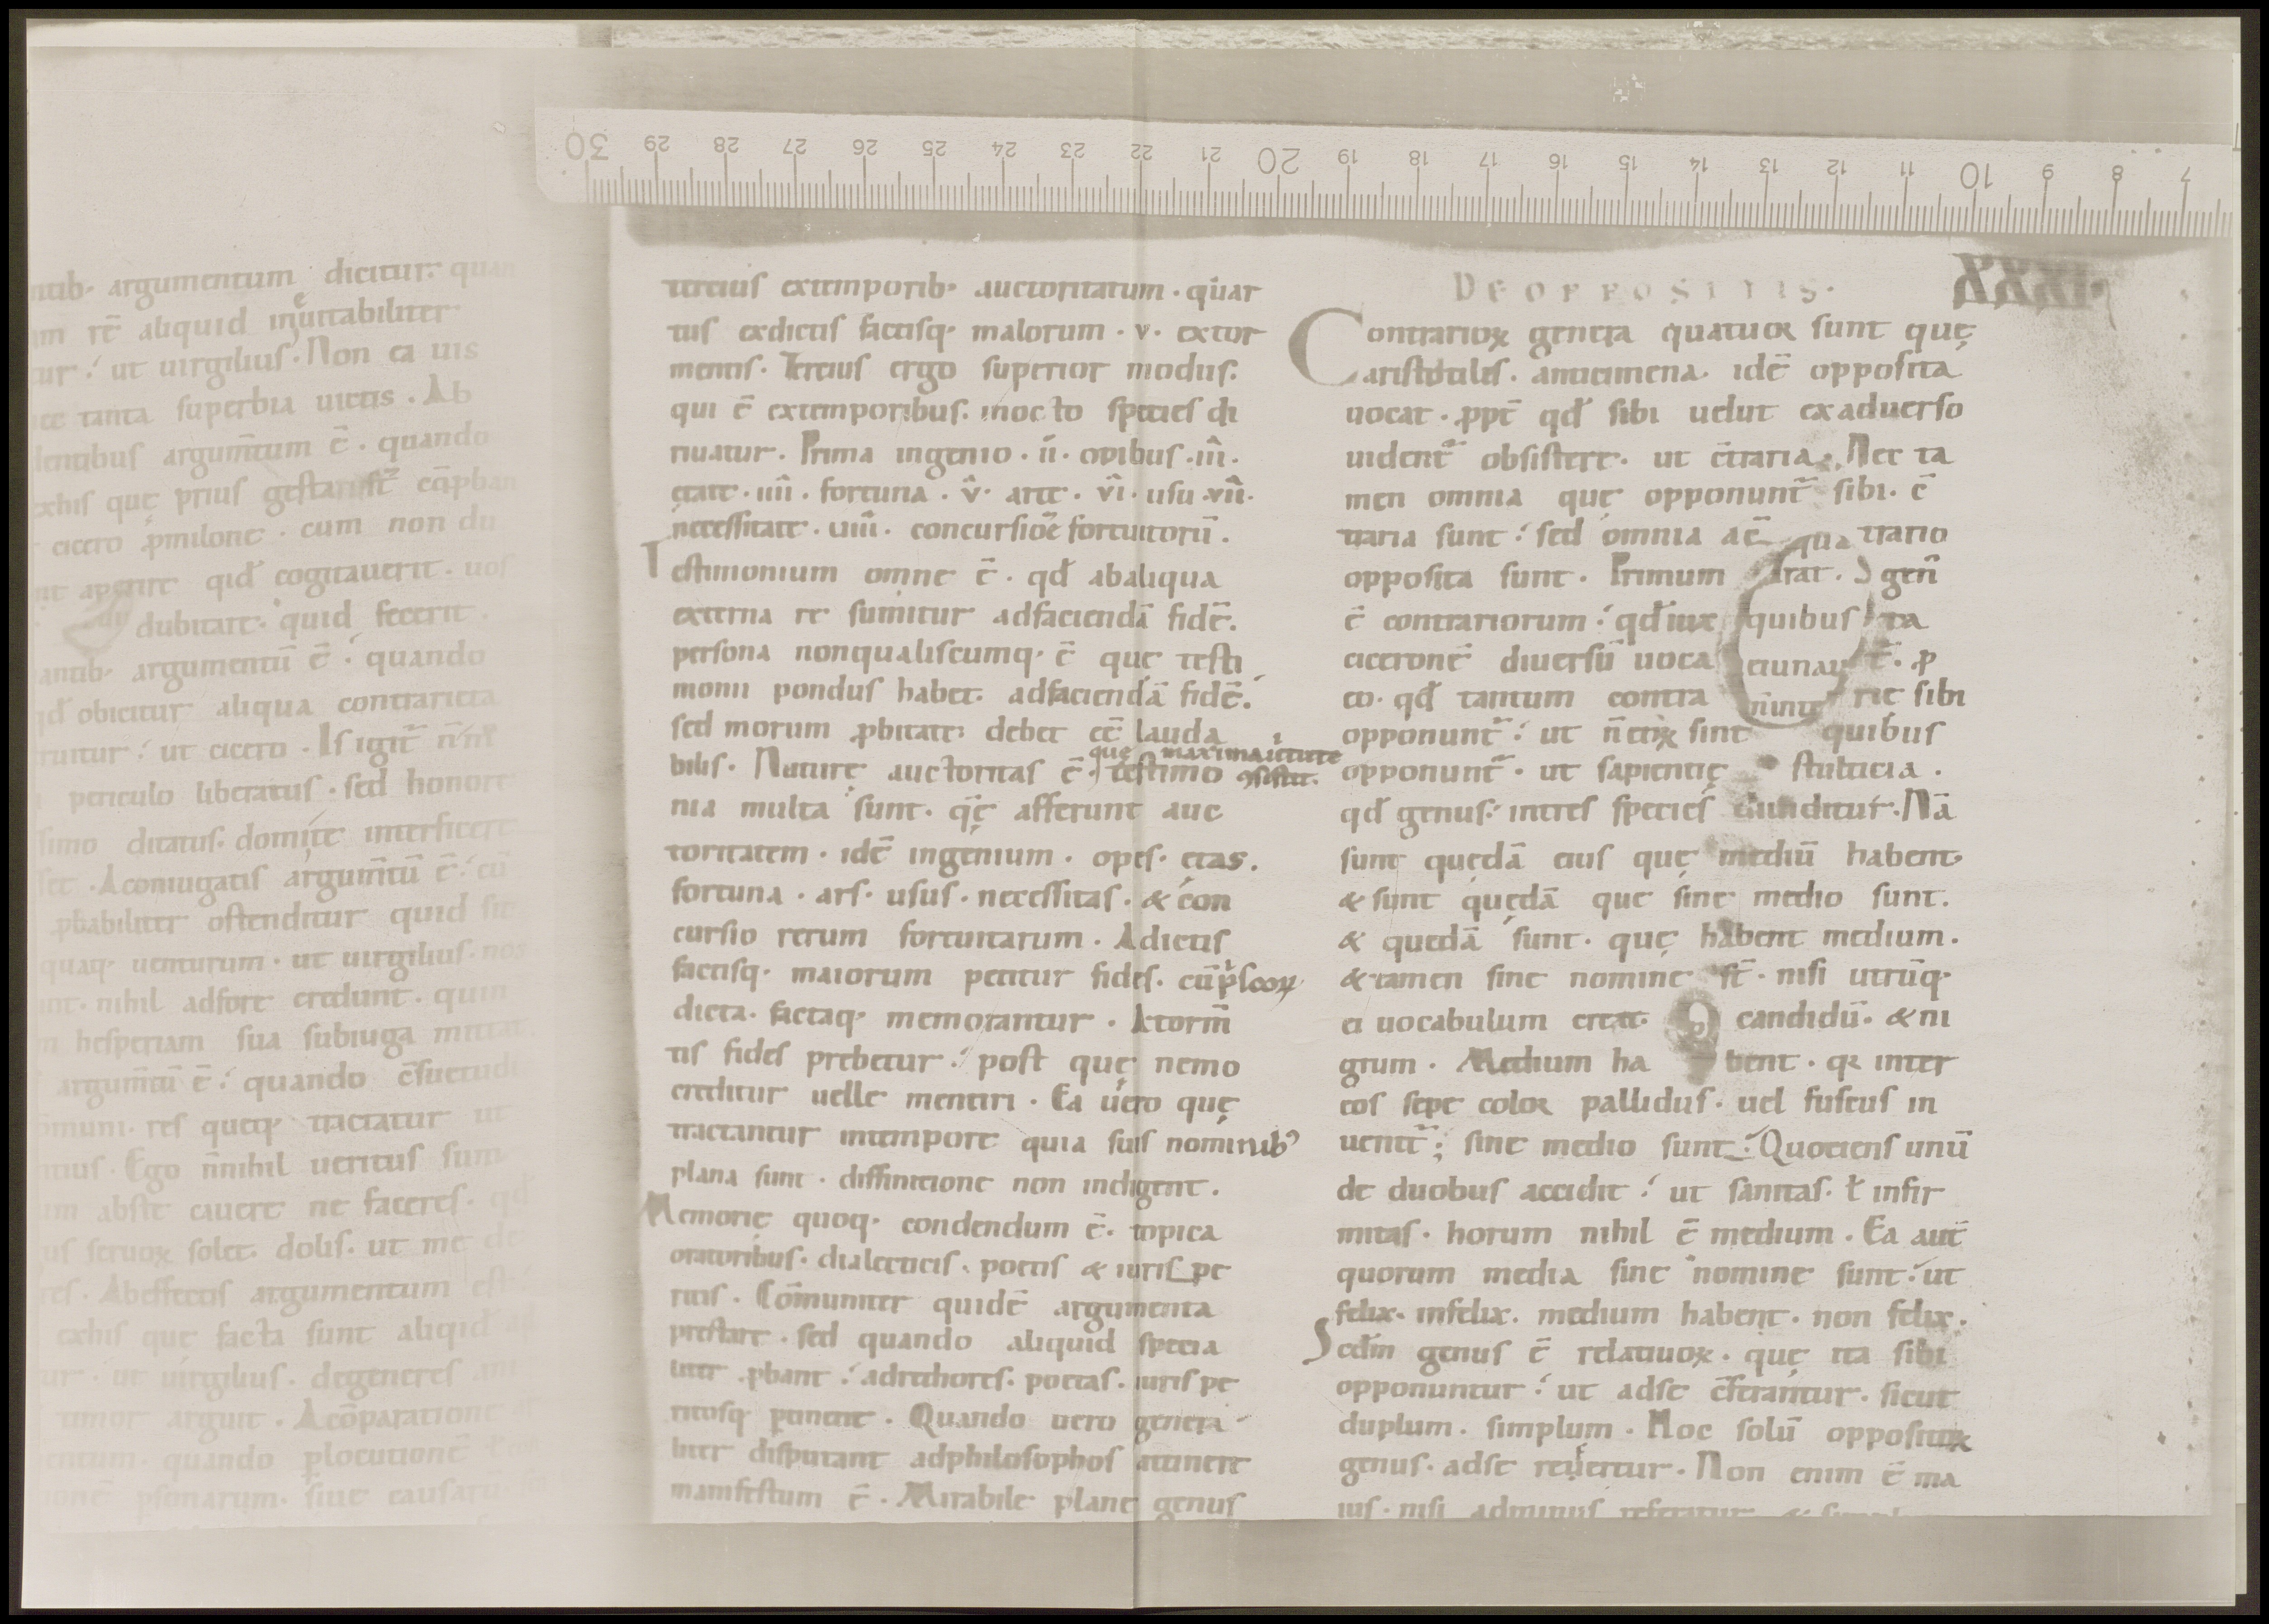 ntib· argumentum dicitur. quan
m rē aliquid ineuitabiliter
tur ⁏ ut uirgilius. Non ea uis
tanta superbia uictis. Ab
dentibus argum̄tum ē. quando
exhis quę prius gesta
cicero ꝓmilone. cum non du
aperire qid̄ cogitauerit. uos
dubitare. quid fecerit.
antib· argumentū ē ⁏ quando
qd̄ obicitur aliqua contrarieta
ruitur ⁏ ut cicero. Is igit̄
periculo liberatus. sed honore
simo ditatus. domi te interficere
set. A coniugatis argum̄tū ē ⁏ cū
ꝓbabiliter ostenditur quid sit
quaq· uenturum. ut uirgilius. nos
nt. nihil adfore credunt. quin
hesperiam sua subiuga mittat
argum̄tū ē ⁏ quando c̄suetudi
ōmuni. res queq· tractatur ut
tius. Ego n̄nihil ueritus sum
um abste cauere ne faceres. qd̄
us seruoꝝ solet. dolis. ut me de
res. Abeffectis argumentum est
exhis que facta sunt aliqid̄
ur ⁏ ut uirgilius. degeneres ani
timor arguit. A cōparatione
entum. quando ꝑlocutionē
onē ꝑsonarum. siue causarū
tercius extemporib· auctoritatum. quar
tus exdictis factisq· malorum. v. extor
mentis. Tercius ergo superior modus.
qui ē extemporibus. inocto species di
riuatur. Prima ingenio. ii. opibus. iii.
ętate. iiii. fortuna. v. arte. vi. usu. vii.
necessitate. uiii. concursiōe fortuitorū.
Testimonium omne ē. qd̄ abaliqua
externa re sumitur adfaciendā fidē.
persona nonqualiscumq· ē que testi
monii pondus habet. adfaciendā fidē.
sed morum ꝓbitate debet eē lauda
bilis. Naturę auctoritas ē. quę maxima uirtute ꝯsistit. testimo
nia multa sunt. q̄ę afferunt auc
toritatem. idē ingenium. opes. ętas.
fortuna. ars. usus. necessitas. & con
cursio rerum fortuitarum. Adictis
factisq· maiorum petitur fides. cū p̄scoꝝ
dicta. factaq· memorantur. Atorm̄
tis fides prebetur ⁏ post quę nemo
creditur uelle mentiri. Ea uero quę
tractantur intempore quia suis nominib᾽
plana sunt. diffinitione non indigent.
Memorię quoq· condendum ē. topica
oratoribus. dialecticis. poetis & iuris pe
ritis. Cōmuniter quidē argumenta
prestare. sed quando aliquid specia
liter ꝓbant ⁏ adrethores. poetas. iuris pe
ritosq· ꝑtinent. Quando uero genera
liter disputant adphilosophos attinere
manifestum ē. Mirabile plane genus
DE OPPOSITIS. XXXI.
Contrarioꝝ genera quatuor sunt quę
aristotiles. anticimena. idē opposita
uocat. ꝓpt̄ qd̄ sibi uelut exaduerso
uident̄ obsistere. ut c̄traria. Nec ta
men omnia quę opponunt̄ sibi. c̄
traria sunt ⁏ sed omnia ac̄ trario
opposita sunt. Primum gen̄
ē contrariorum ⁏ qd̄ iux ta
ciceronē diuersū uoca t̄. ꝓ
eo. qd̄ tantum contra rie sibi
opponunt̄ ⁏ ut n̄ eiꝝ sint quibus
opponunt̄. ut sapientię stulticia.
qd̄ genus ⁏ intres species diuiditur. Nā
sunt quędā eius quę mediū habent
& sunt quędā que sine medio sunt.
& quedā sunt. quę habent medium.
& tamen sine nomine st̄. nisi utrūq·
ei uocabulum creat. candidū. & ni
grum. Medium ha bent. qꝛ inter
eos sepe color pallidus. uel fuscus in
uenit̄ ; sine medio sunt ⁏ Quociens unū
de duobus accidit ⁏ ut sanitas. ł infir
mitas. horum nihil ē medium. Ea aut̄
quorum media sine nomine sunt ⁏ ut
felix. infelix. medium habent. non felix.
Scd̄m genus ē relatiuoꝝ. quę ita sibi
opponuntur ⁏ ut adse c̄ferantur. sicut
duplum. simplum. Hoc solū oppositoꝝ
genus. adse reuertur. Non enim ē ma
ius. nisi adminus referatur
qua
quibus
30 29 28 27 26 25 24 23 22 21 20 19 18 17 16 15 14 13 12 11 10 9 8 7